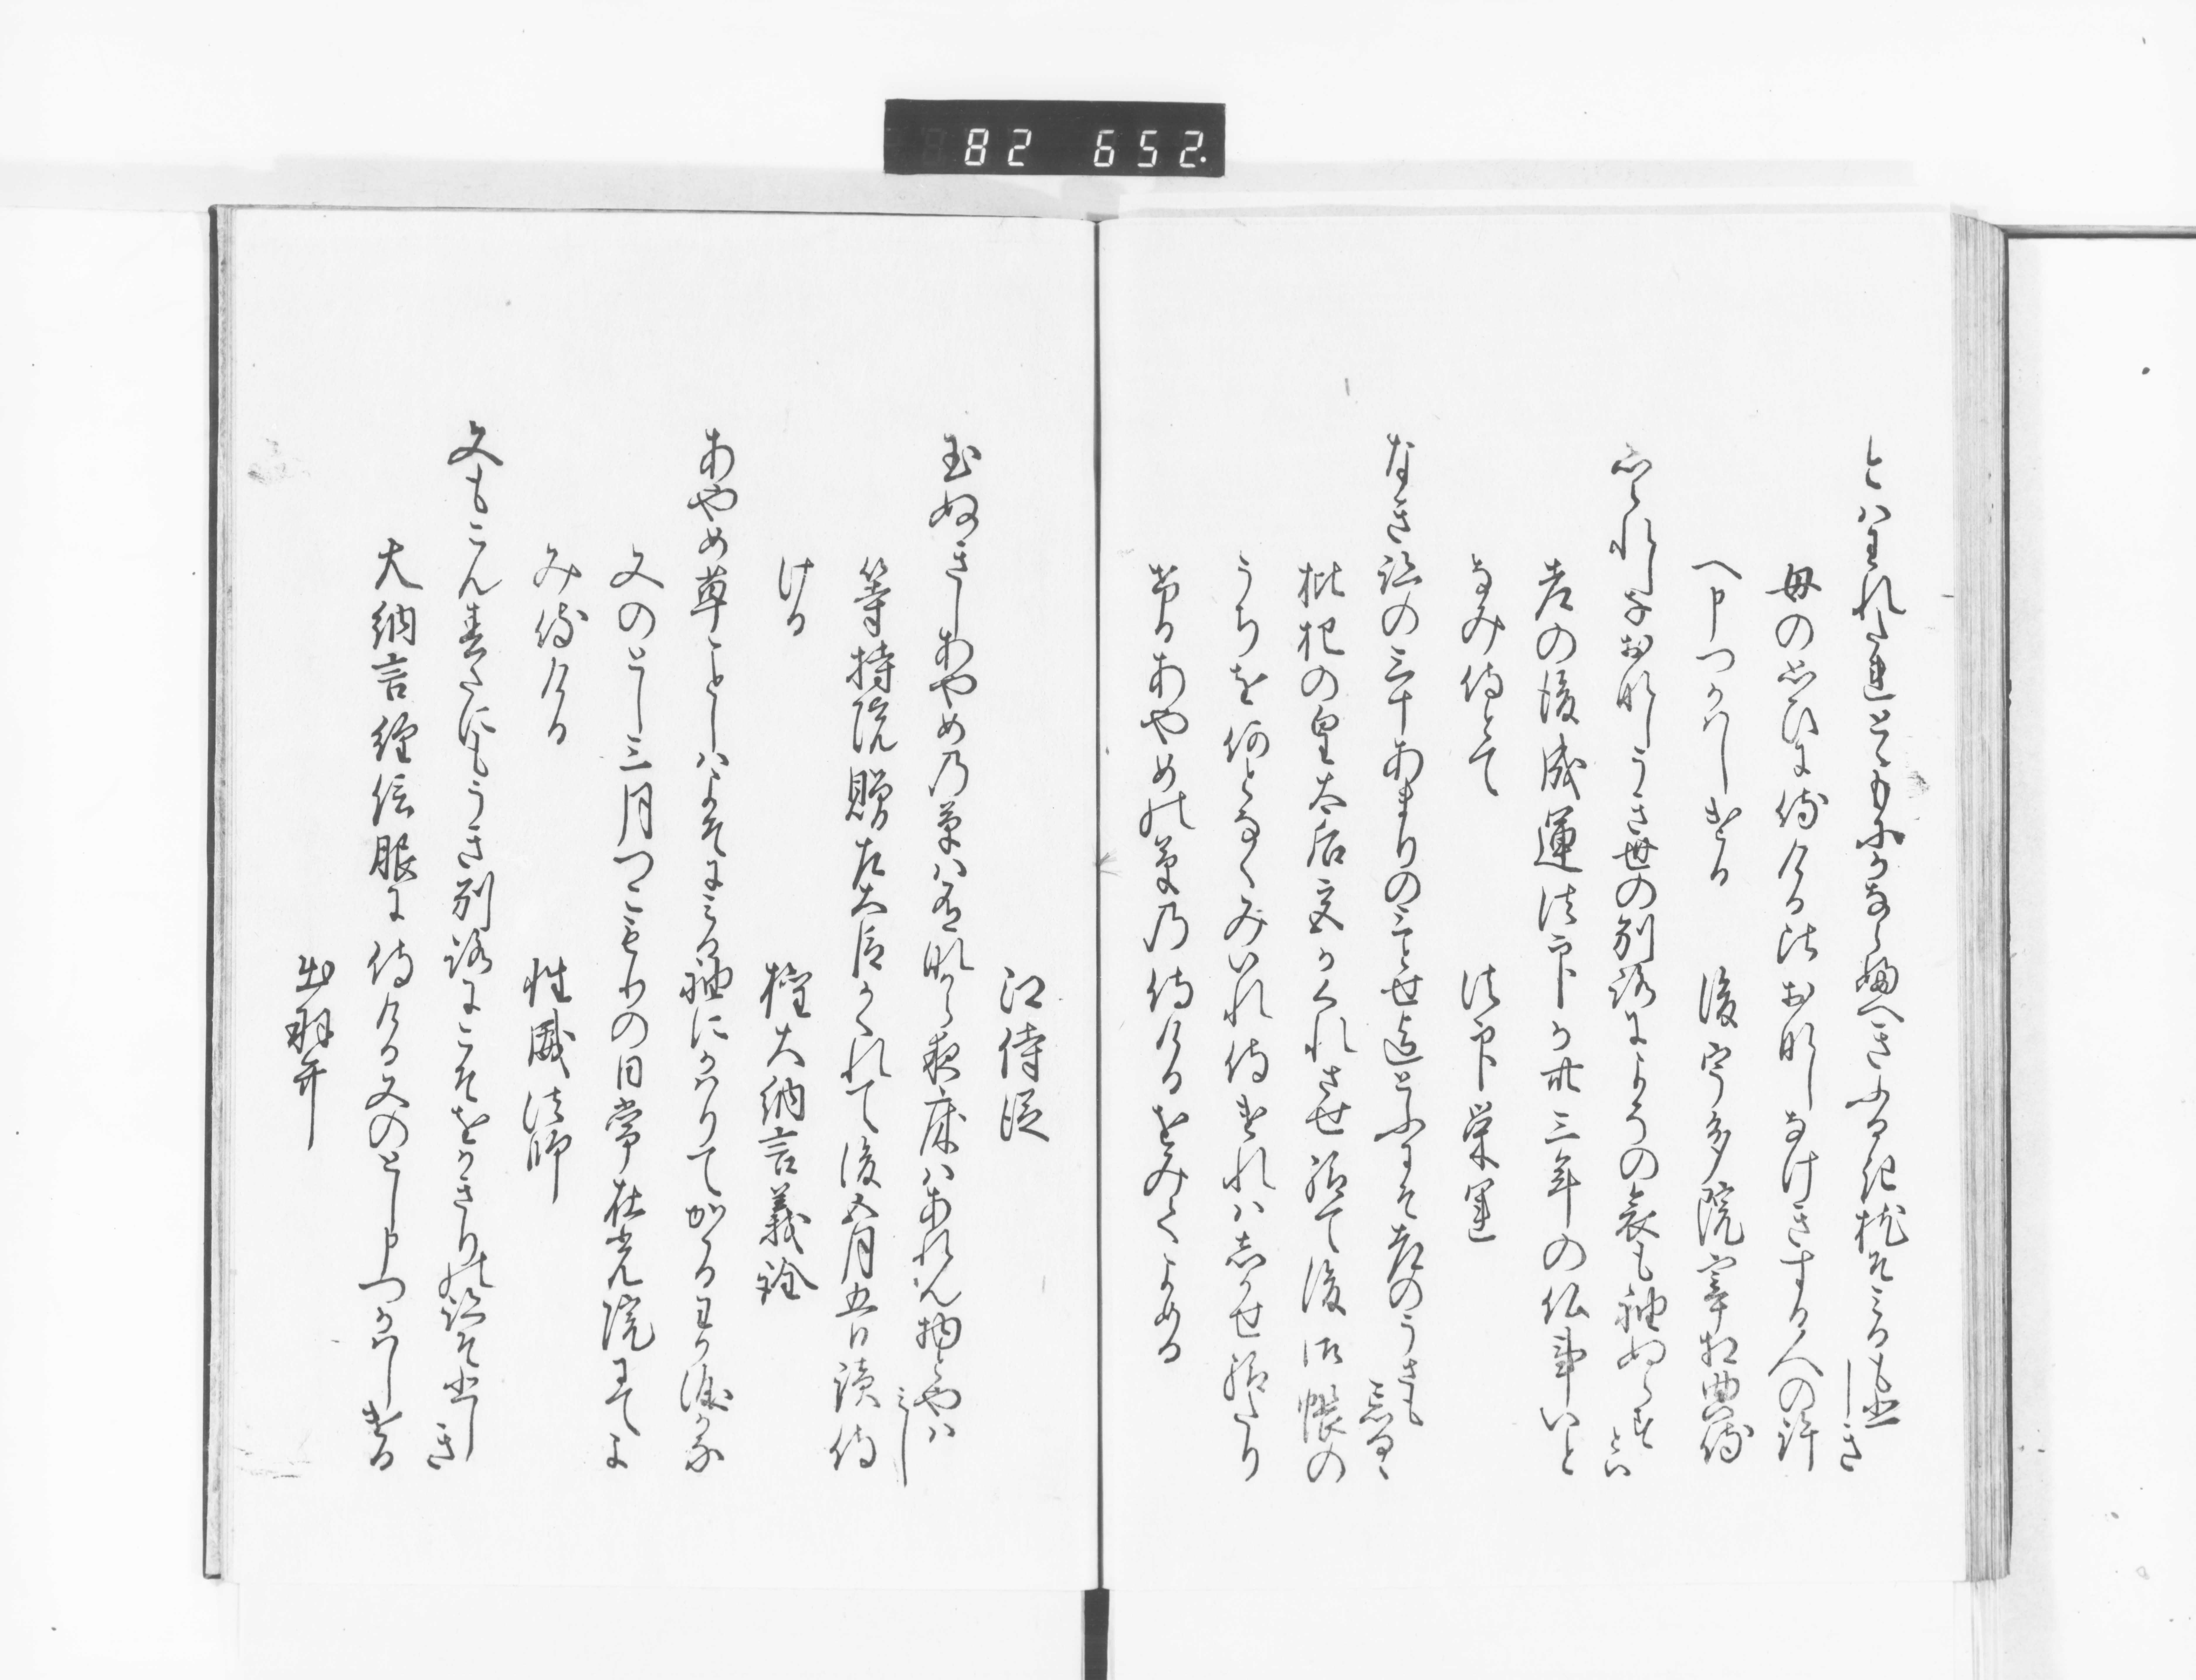 82 652.
とはれたれと
母の思ひに侍ける比おなしなけきする人の許
へ申つかはしける　後宇多院宰相典侍
しられしなおなしうき世の別路によその哀も袖ぬらすとは
老の後成運法印か卅三年の仏事いと
なみ侍とて　法印栄運
なき跡の三十あまりの三とせ迄とふにそ老のうきも忘るゝ
枇杷の皇太后宮かくれさせ給て後御帳の
うちを何となくみいれ侍けれはしかせ給たり
けるあやめの草の侍けるをみてよめる
江侍従
玉ぬきしあやめの草は有なから夜床はあれん物とやはみし
等持院贈左大臣かくれて後五月五日読侍
ける　権大納言義詮
あやめ草ことしはよそにみる袖にかはりてかゝるわか涙かな
又のとし三月つこもりの日常在光院にてよ
み侍ける　性威法師
又もこん春たにもうき別路にこそをかきりの跡そ悲しき
大納言経信服に侍ける又のとし申つかはしける
出羽弁